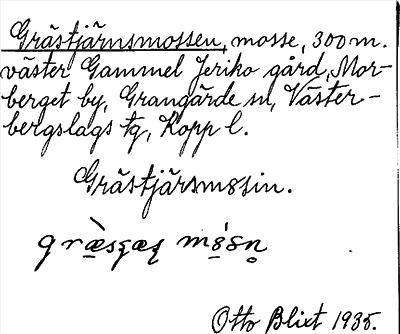 Grästjärnsmossen, mosse, 300 m.
väster Gammel Jeriko gård, Mor-
berget by, Grangärde sn, Väster-
bergslags tg, Kopp l.
Grästjärsmosin.
Otto Blixt 1935.